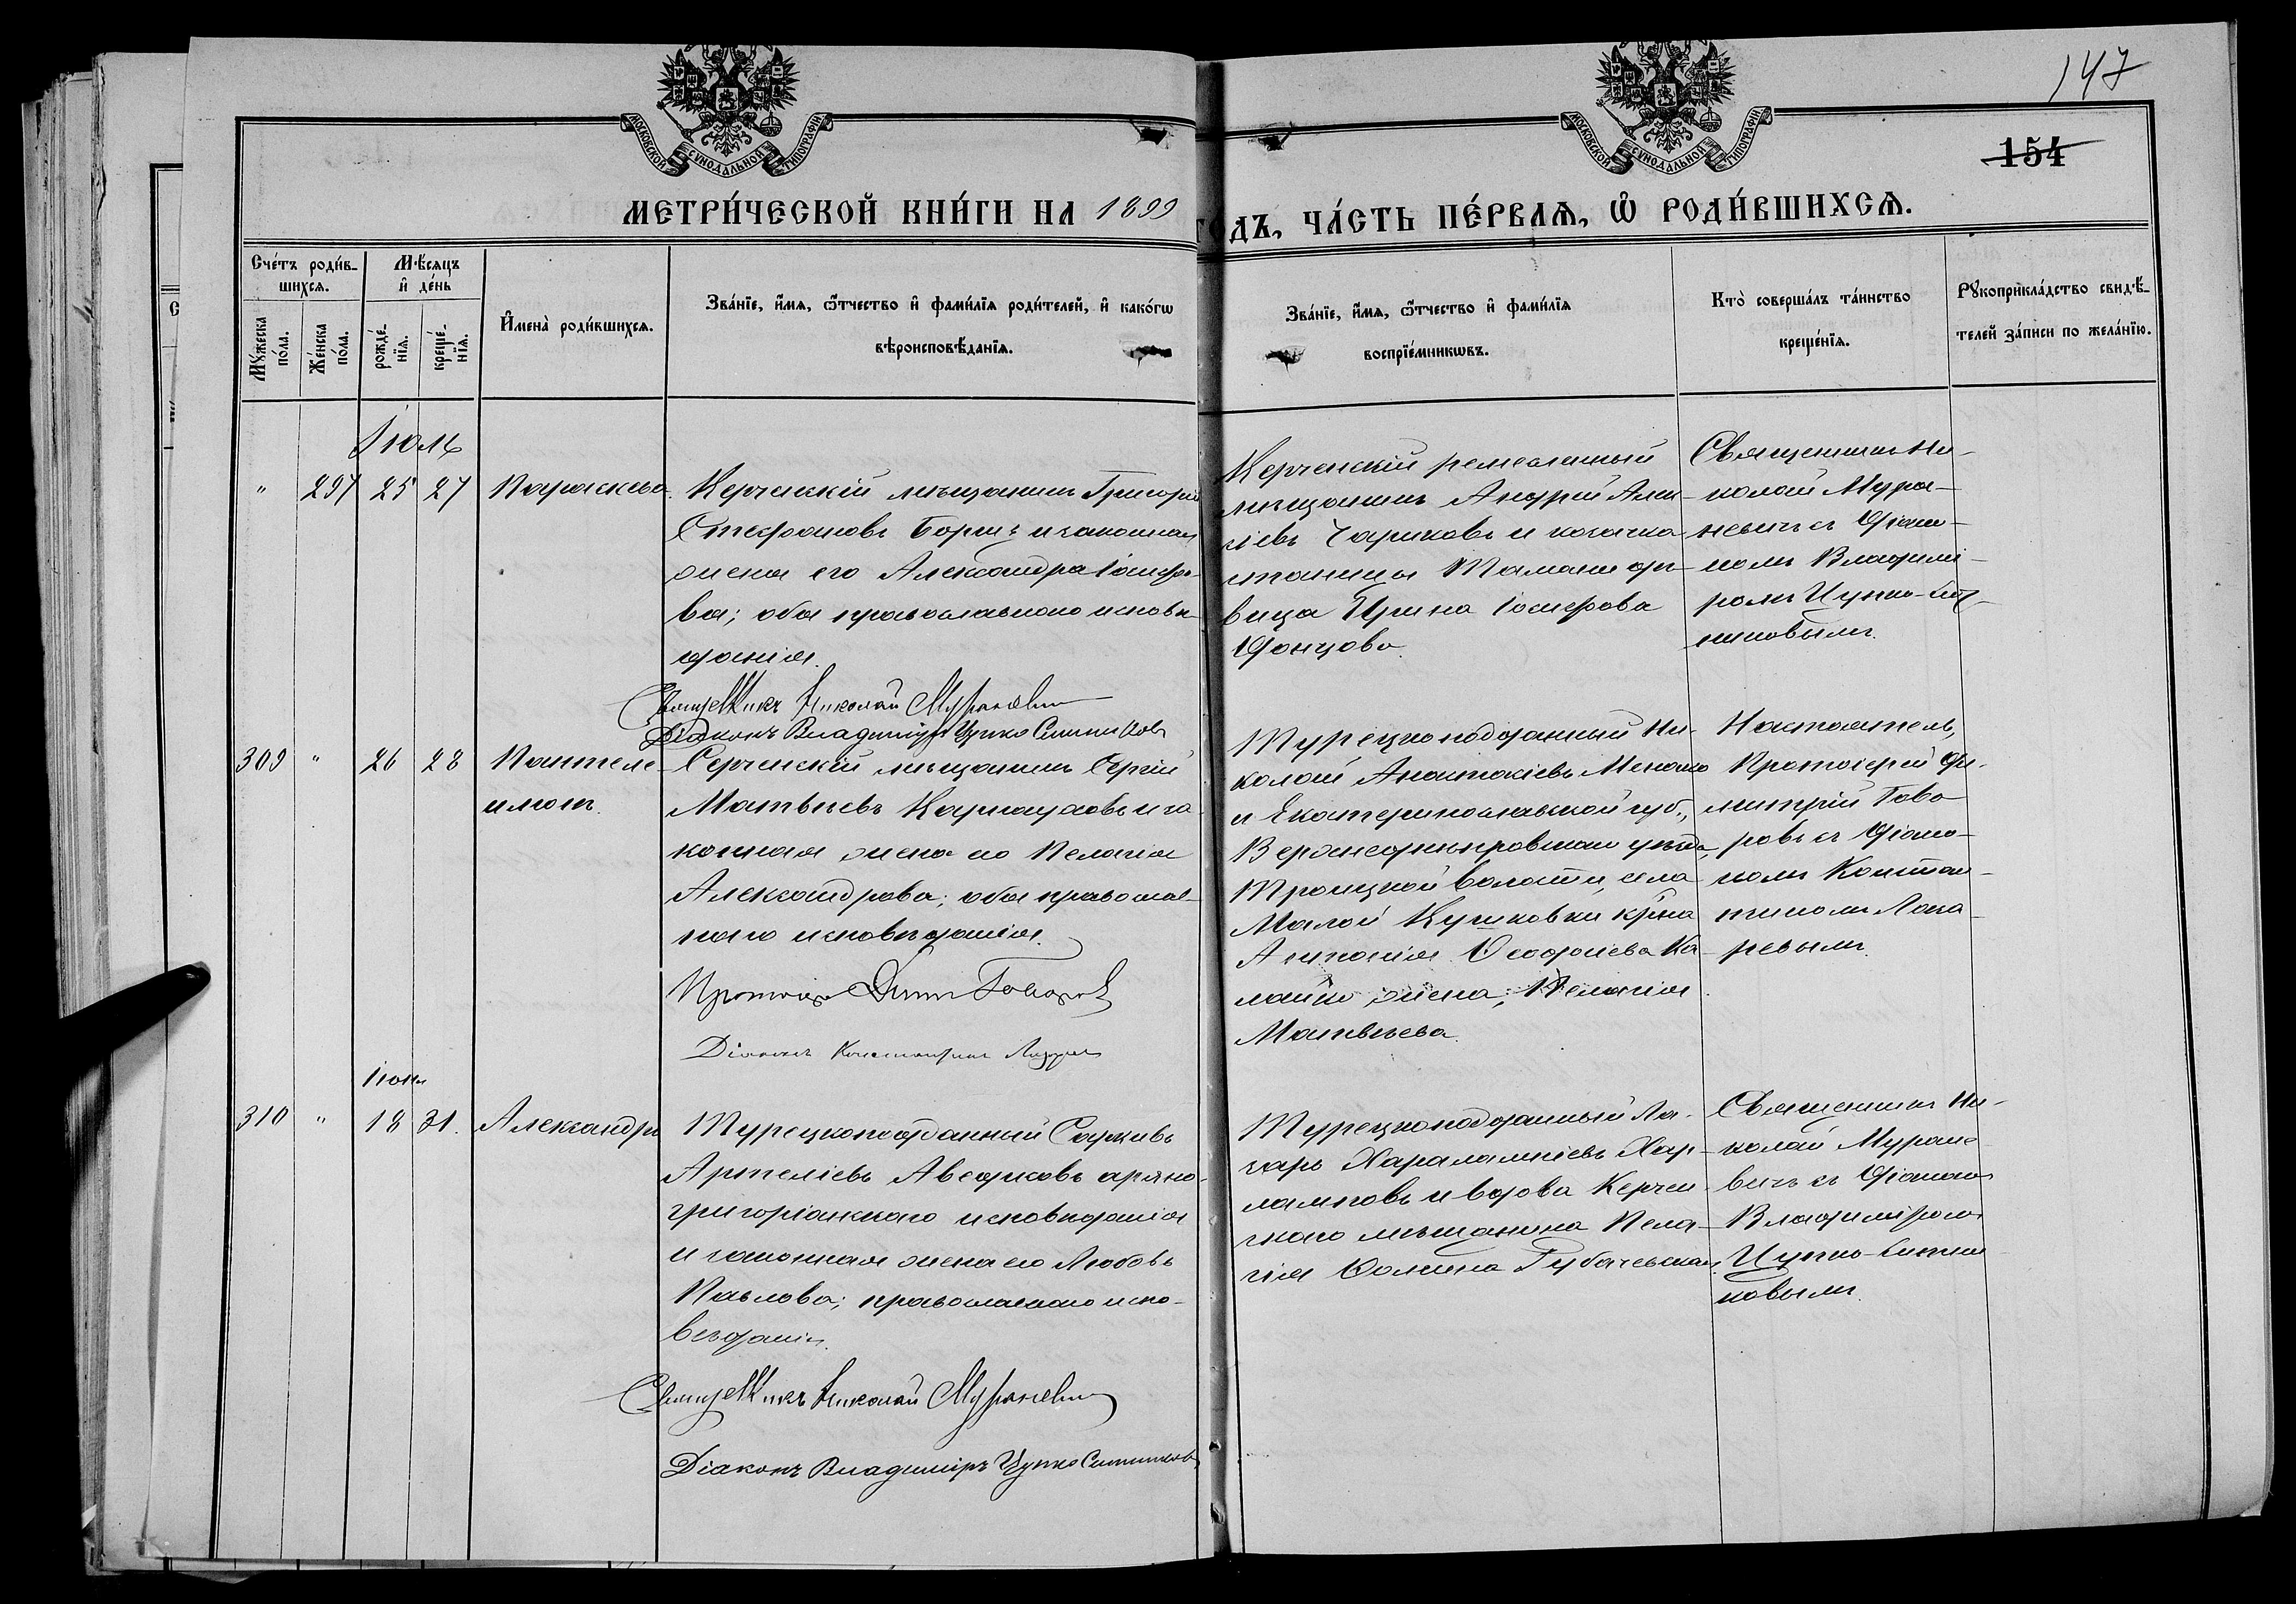 147
154
МОСКОВСКОЙ СѴНОДАЛЬНОЙ ТИПОГРАФІИ
МОСКОВСКОЙ СѴНОДАЛЬНОЙ ТИПОГРАФІИ
МЕТРИ́ЧЕСКОЙ КНИ́ГИ НА 1899 ГОДЪ, ЧА́СТЬ ПЕ́РВАѦ, Ѡ҆ РОДИ́ВШИХСѦ.
Сче́тъ роди́в-
шихсѧ.
Мѣ́сѧцъ
и҆ де́нь
Мꙋ́жеска
по́ла.
Же́нска
по́ла.
рожде́-
нїѧ.
креще́-
нїѧ.
И҆мена̀ роди́вшихсѧ.
Зва́нїе, и҆́мѧ, ѻ҆́тчество и҆ фами́лїѧ роди́телей, и҆ како́гѡ
вѣроисповѣ́данїѧ.
Зва́нїе, и҆́мѧ, ѻ҆́тчество и҆ фами́лїѧ
воспрїе́мникѡвъ.
Кто̀ соверша́лъ та́инство
креще́нїѧ.
Рꙋкоприкла́дство свидѣ́-
телей за́писи по жела́нїю.
Іюль
" 297 25 27 Параскева
Керченскій мѣщанинъ Григорій
Стефановъ и законная
жена его Александра Іосифо-
ва; оба православнаго исповѣ-
данія.
Священникъ Николай Мураневичъ
Діаконъ Владиміръ Цупко Ситниковъ
Керченскій ремесленный
мѣщанинъ Андрей
Чариковъ и казачка
станицы Тамани дѣ-
вица Ирина Іосифова
Донцова.
Священникъ Ни-
колай Мура-
невичъ съ Діако-
номъ Владимі-
ромъ Цупко-Сит-
никовымъ.
309 " 26 28 Пантеле-
имонъ.
Керченскій мѣщанинъ Сергій
Матвѣевъ Карнауховъ и за-
конная жена его Пелагія
Александрова; оба православ-
наго исповѣданія.
Діаконъ Константинъ
Турецкоподданный Ни-
колай
и Екатеринославской губ.,
Верхнеднѣпровскаго уѣзда,
Троицкой волости, села
Малой
жена, Пелагія
Матвѣева.
Настоятель,
Протоіерей Ди-
митрій Гово-
ровъ съ Діако-
номъ Констан-
тиномъ
Іюнь
310 " 18 31. Александръ
Турецкоподданный Саркисъ
Аведисовъ армяно-
григоріанскаго исповѣданія
и законная жена его Любовь
Павлова; православнаго испо-
вѣданія.
Священникъ Николай Мураневичъ
Діаконъ Владиміръ Цупко Ситниковъ
Турецкоподданный Ла-
зарь Харалампіевъ Хар-
ламповъ и вдова Керчен-
скаго мѣщанина Пела-
гія Фомина
Священникъ Ни-
колай Муране-
вичъ съ Діакономъ
Владиміромъ
Цупко-Ситни-
ковымъ.